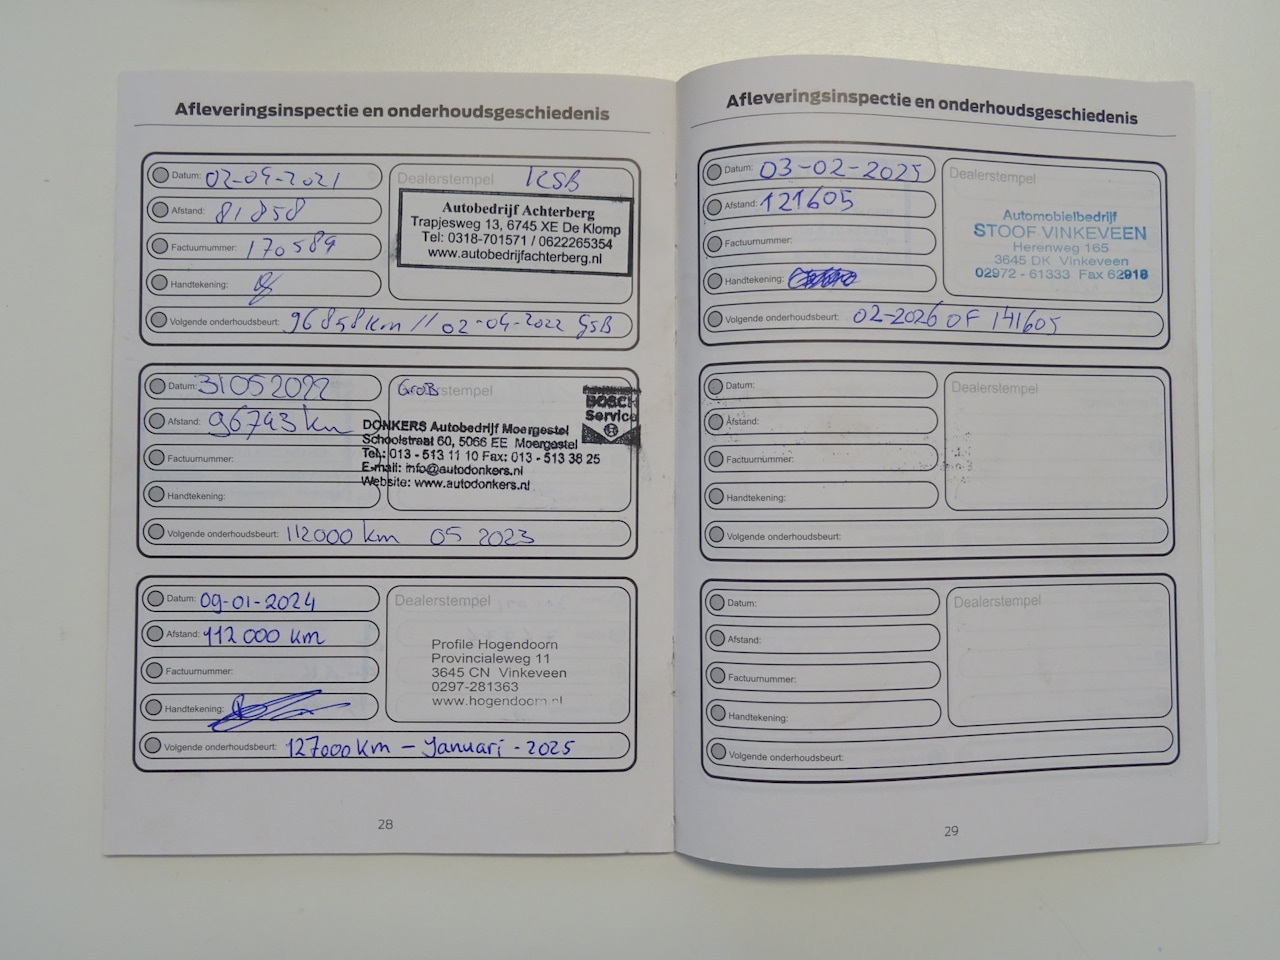 Afleveringsinspectie en onderhoudsgeschiedenis
Datum: 02-04-2021
Afstand: 81858
Factuurnummer: 170589
Handtekening:
Volgende onderhoudsbeurt: 96858 km // 02-04-2022 GSB
Dealerstempel KSB
Autobedrijf Achterberg
Trapjesweg 13, 6745 XE De Klomp
Tel: 0318-701571 / 0622265354
www.autobedrijfachterberg.nl
Datum: 31052022
Afstand: 96743 km
Factuurnummer:
Handtekening:
Volgende onderhoudsbeurt: 112000 km 05 2023
Dealerstempel
BOSCH
Service
DONKERS Autobedrijf Moergestel
Schoolstraat 60, 5066 EE Moergestel
Tel.: 013 - 513 11 10 Fax: 013 - 513 38 25
E-mail: info@autodonkers.nl
Website: www.autodonkers.nl
Datum: 09-01-2024
Afstand: 112 000 km
Factuurnummer:
Handtekening:
Volgende onderhoudsbeurt: 127000 km - Januari - 2025
Dealerstempel
Profile Hogendoorn
Provincialeweg 11
3645 CN Vinkeveen
0297-281363
www.hogendoorn.nl
28
Afleveringsinspectie en onderhoudsgeschiedenis
Datum: 03-02-2025
Afstand: 121605
Factuurnummer:
Handtekening:
Volgende onderhoudsbeurt: 02-2026 OF 141605
Dealerstempel
Automobielbedrijf
STOOF VINKEVEEN
Herenweg 165
3645 DK Vinkeveen
02972 - 61333 Fax 62918
Datum:
Afstand:
Factuurnummer:
Handtekening:
Volgende onderhoudsbeurt:
Dealerstempel
Datum:
Afstand:
Factuurnummer:
Handtekening:
Volgende onderhoudsbeurt:
Dealerstempel
29